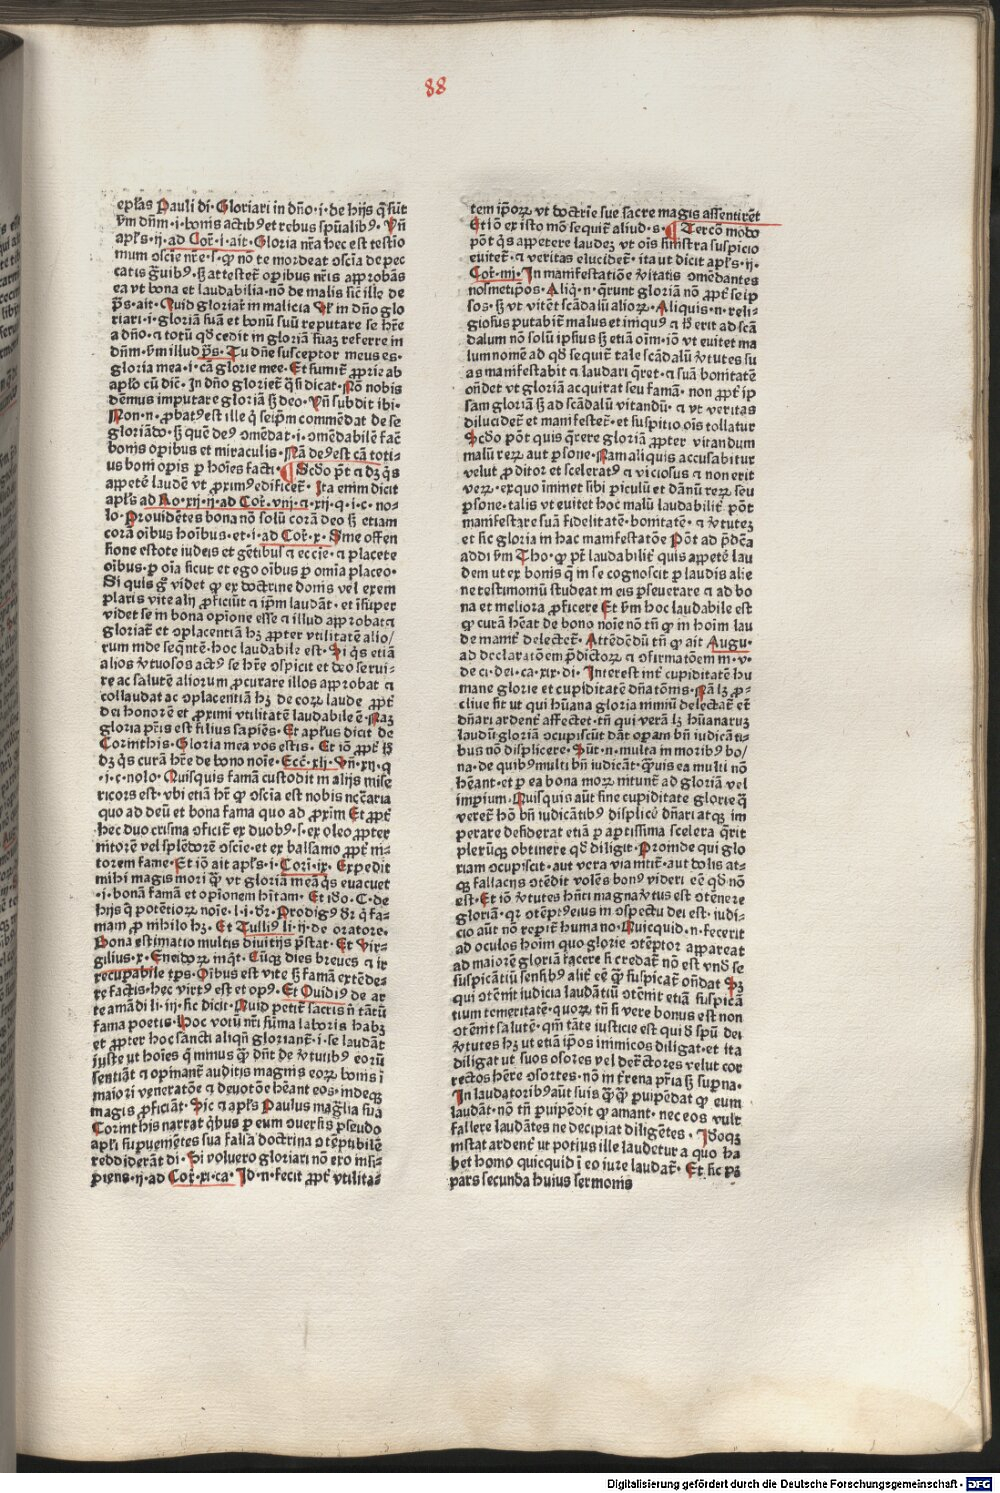 88
epl̄as Pauli dī·Gloriari in dn̄o·i·de hijs q̄ sūt
ẜm dn̄m·i·bonis actib⁹ et rebus spūalib⁹· Vn̄
apl̄s·ij·ad Cor̄·i·ait·Gloria nr̄a hec est testio
mum ꝯsciē nr̄e·s·ꝙ nō te mordeat ꝯscīa de pec
catis ḡuib⁹·sꝫ attestet̄ oꝑibus nr̄is approbās
ea vt bona et laudabilia·nō de malis sic̄ ille de
p̄s·ait·Quid gloriar̄ in malicia Vl̄ in dn̄o glo
riari·i·gloriā suā et bonū suū reputare se hr̄e
a dn̄o·⁊ totū qd̄ cedit in gloriā suaꝫ referre in
dn̄m·ẜm illud p̄s·Tu dn̄e susceptor meus es·
gloria mea·i·cā glorie mee·Et sumit̄ ꝓprie ab
apl̄o cū dic̄·In dn̄o gloriet̄ q̄si dicat·Nō nobis
dēmus imputare gloriā sꝫ deo·Vn̄ subdit ibi·
Non·n·ꝓbat⁹ est ille q̄ seip̄m commēdat de se
gloriādo·sꝫ quē de⁹ ꝯmēdat·i·ꝯmēdabilē fac̄
bonis oꝑibus et miraculis·Nā de⁹ est cā toti-
us boni oꝑis ꝑ hoīes facti·¶Scd̄o pt̄ ⁊ dꝫ q̄s
appetē laudē vt ꝓxim⁹ edificet̄·Ita enim dicit
apl̄s ad Ro·xij·ij·ad Cor̄·viij·⁊·xij·q·i·c·no-
lo·Prouidētes bona nō solū corā deo sꝫ etiam
corā oībus hoībus·et·i·ad Cor̄·x·Sine offen
sione estote iudeis et gētibus ⁊ eccīe·⁊ placete
oībus·ꝑ oīa sicut et ego oībus ꝑ omīa placeo·
Si quis g̊ videt ꝙ ex doctrine donis vel exem
plaris vite alij ꝓficiūt ⁊ ip̄m laudāt·et īsuper
videt se in bona opīone esse ⁊ illud approbat ⁊
gloriat̄ et ꝯplacentiā hꝫ ꝓpter vtilitatē alio/
rum īnde seq̄ntē·hoc laudabile est·Si q̄s etiā
alios v̄tuosos act⁹ se hr̄e ꝯspicit et deo serui-
re ac salutē aliorum ꝓcurare illos approbat ⁊
collaudat ac ꝯplacentiā hꝫ de eorꝝ laude ꝓpt̄
dei honorē et ꝓximi vtilitatē laudabile ē·Naꝫ
gloria pr̄is est filius sapiēs·Et apl̄us dicit de
Corinthis·Gloria mea vos estis·Et iō ꝓpt̄ ẜ
dꝫ q̄s curā hr̄e de bono noīe·Ecc̄·xlj·Vn̄·xij·q
·i·c·nolo·Quisquis famā custodit in alijs mise
ricors est·vbi etiā hr̄ ꝙ ꝯscīa est nobis ncc̄aria
quo ad deū et bona fama quo ad ꝓxim̄ Et ꝓpt̄
hec duo crisma ꝯficit̄ ex duob⁹·s·ex oleo ꝓpter
nitorē vel splēdorē ꝯscīe·et ex balsamo ꝓpt̄ ni-
torem fame·Et iō ait apl̄s·i·Cori·ix·Expedit
mihi magis mori q̄ꝫ vt gloriā meā q̄s euacuet
·i·bonā famā et opīonem hītam·Et ido·C·de
hijs q̄ potētiorꝝ noīe·l·i·dr̄·Prodig⁹ dr̄ q̄ fa-
mam ꝓ nihilo hꝫ·Et Tulli⁹ li·ij·de oratore·
Bona estimatio multis diuitijs p̄stat·Et Vir-
gilius·x·Eneidorꝝ inq̄t·Cuiꝙ dies breues ⁊ ir
recuꝑabile tp̄s·Oībus est vite sꝫ famā extēde-
re factis·hec virt⁹ est et op⁹·Et Ouidi⁹ de ar
te amādi li·iij·sic dicit·Quid petit̄ sacris n̄ tātū
fama poetis·Hoc votū nr̄i sūma laboris habꝫ
et ꝓpter hoc sancti aliqn̄ gloriant̄·i·se laudāt
iuste ut hoīes q̄ minus q̄ꝫ dn̄t de v̄tutib⁹ eorū
sentiāt ⁊ opinant̄ auditis magnis eorꝝ bonis ī
maiori veneratōe ⁊ deuotōe hēant eos·indeqꝫ
magis ꝓficiāt·Sic ⁊ apl̄s Paulus maḡlia sua
Corinthis narrat q̄bus ꝑ eum ꝯuersis pseudo
apl̄i suꝑueniētes sua falsa doctrina ꝯtēptibilē
reddiderāt dī·Si voluero gloriari nō ero insi-
piens·ij·ad Cor̄·xi·ca·Id·n·fecit ꝓpt̄ vtilita-
tem ip̄orꝝ vt doctrīe sue sacre magis assentirēt
Et iō ex isto mō sequit̄ aliud·s·¶Tercō modo
pōt q̄s appetere laudeꝫ vt oīs sinistra suspicio
euitet̄·⁊ veritas elucidet̄·ita ut dicit apl̄s·ij·
Cor̄·iiij·In manifestatiōe v̄itatis ꝯmēdantes
nosmetip̄os·Aliq̄·n·q̄runt gloriā nō ꝓpt̄ seip̄
los·sꝫ vt vitēt scādalū aliorꝝ·Aliquis·n·reli-
giosus putabit̄ malus et iniqu⁹ ⁊ ẜ erit ad scā
dalum nō solū ipsius sꝫ etiā oīm·iō vt euitet ma
lum nomē ad qd̄ sequit̄ tale scādalū v̄tutes su
as manifestabit ⁊ laudari q̄ret·⁊ suā bonitatē
ondet vt gloriā acquirat seu famā·non ꝓpt̄ ip̄
sam gloriā sꝫ ad scādalū vitandū·⁊ vt veritas
dilucidet̄ et manifestet̄·et suspitio oīs tollatur
Scd̄o pōt quis q̄rere gloriā ꝓpter vitandum
malū rerꝝ aut ꝑsone·Nam aliquis accusabitur
velut ꝓditor et scelerat⁹ ⁊ viciosus ⁊ non erit
verꝝ·exquo iminet sibi ꝑiculū et dānū rerꝝ seu
ꝑsone·talis vt euitet hoc malū laudabilit̄ pōt
manifestare suā fidelitatē·bonitatē·⁊ v̄tuteꝫ
et sic gloria in hac manifestatōe Pōt ad p̄dc̄a
addi ẜm Tho·ꝙ pt̄ laudabilit̄ quis appetē lau
dem ut ex bonis q̄ in se cognoscit ꝑ laudis alie
ne testimoniū studeat in eis ꝑseuerare ⁊ ad bo
na et meliora ꝓficere Et ẜm hoc laudabile est
ꝙ curā hēat de bono noīe nō tn̄ ꝙ in hoīm lau
de inanit̄ delectet̄·Attēdēdū tn̄ ꝙ ait Augu·
ad declaratōem p̄dictorꝝ ⁊ ꝯfirmatōem in·v·
de ci·dei·ca·xix·di·Interest int̄ cupiditatē hu
mane glorie et cupiditatē dn̄atōnis·Nā lꝫ ꝓ-
cliue sit ut qui hūana gloria nimiū delectat̄ et̄
dn̄ari ardent̄ affectet·tn̄ qui verā lꝫ hūanaruꝫ
laudū gloriā ꝯcupiscūt dāt oꝑam bn̄ iudicāti-
bus nō displicere·Sūt·n·multa in moribus bo/
na·de quib⁹ multi bn̄ iudicāt·q̄ꝫuis ea multi nō
hēant·et ꝑ ea bona morꝝ nitunt̄ ad gloriā vel
imꝑium·Quisquis aūt sine cupiditate glorie q̄
veret̄ hō bn̄ iudicātib⁹ displicē dn̄ari atqꝫ im
perare desiderat etiā ꝑ aptissima scelera q̄rit
plerūqꝫ obtinere qd̄ diligit·Proinde qui glo
riam ꝯcupiscit·aut vera via nitit̄·aut dolis at-
qꝫ fallacijs ꝯtēdit volēs bon⁹ videri eē qd̄ nō
est·Et iō v̄tutes hn̄ti magna v̄tus est ꝯtēnere
gloriā·qꝛ ꝯtēpt⁹ eius in ꝯspectu dei est·iudi-
cio aūt nō reꝑit̄ humano·Quicquid·n·fecerit
ad oculos hoīm quo glorie ꝯtēptor appareat
ad maiorē gloriā facere si credat̄ nō est vn̄ se
suspicātiū sensib⁹ alit̄ eē q̄ꝫ suspicat̄ on̄dat Sꝫ
qui ꝯtēnit iudicia laudātiū ꝯtēnit etiā suspicā
tium temeritatē·quorꝝ tn̄ si vere bonus est non
ꝯtēnit salutē·qm̄ tāte iusticie est qui d̄ spū dei
v̄tutes hꝫ ut etiā ip̄os inimicos diligat·et ita
diligat ut suos osores vel detr̄ctores velut cor
rectos hēre ꝯsortes·nō in tr̄ena pr̄ia sꝫ suꝑna·
In laudatorib⁹ aūt suis q̄ꝫq̄ꝫ ꝑuipēdat ꝙ eum
laudāt·nō tn̄ ꝑuipēdit ꝙ amant·nec eos vult
fallere laudātes ne decipiat diligētes·Idoqꝫ
instat ardent̄ ut potius ille laudetur a quo ha
bet homo quicquid ī eo iure laudat̄·Et sic pꝫ
pars secunda huius sermonis
Digitalisierung gefördert durch die Deutsche Forschungsgemeinschaft - DFG